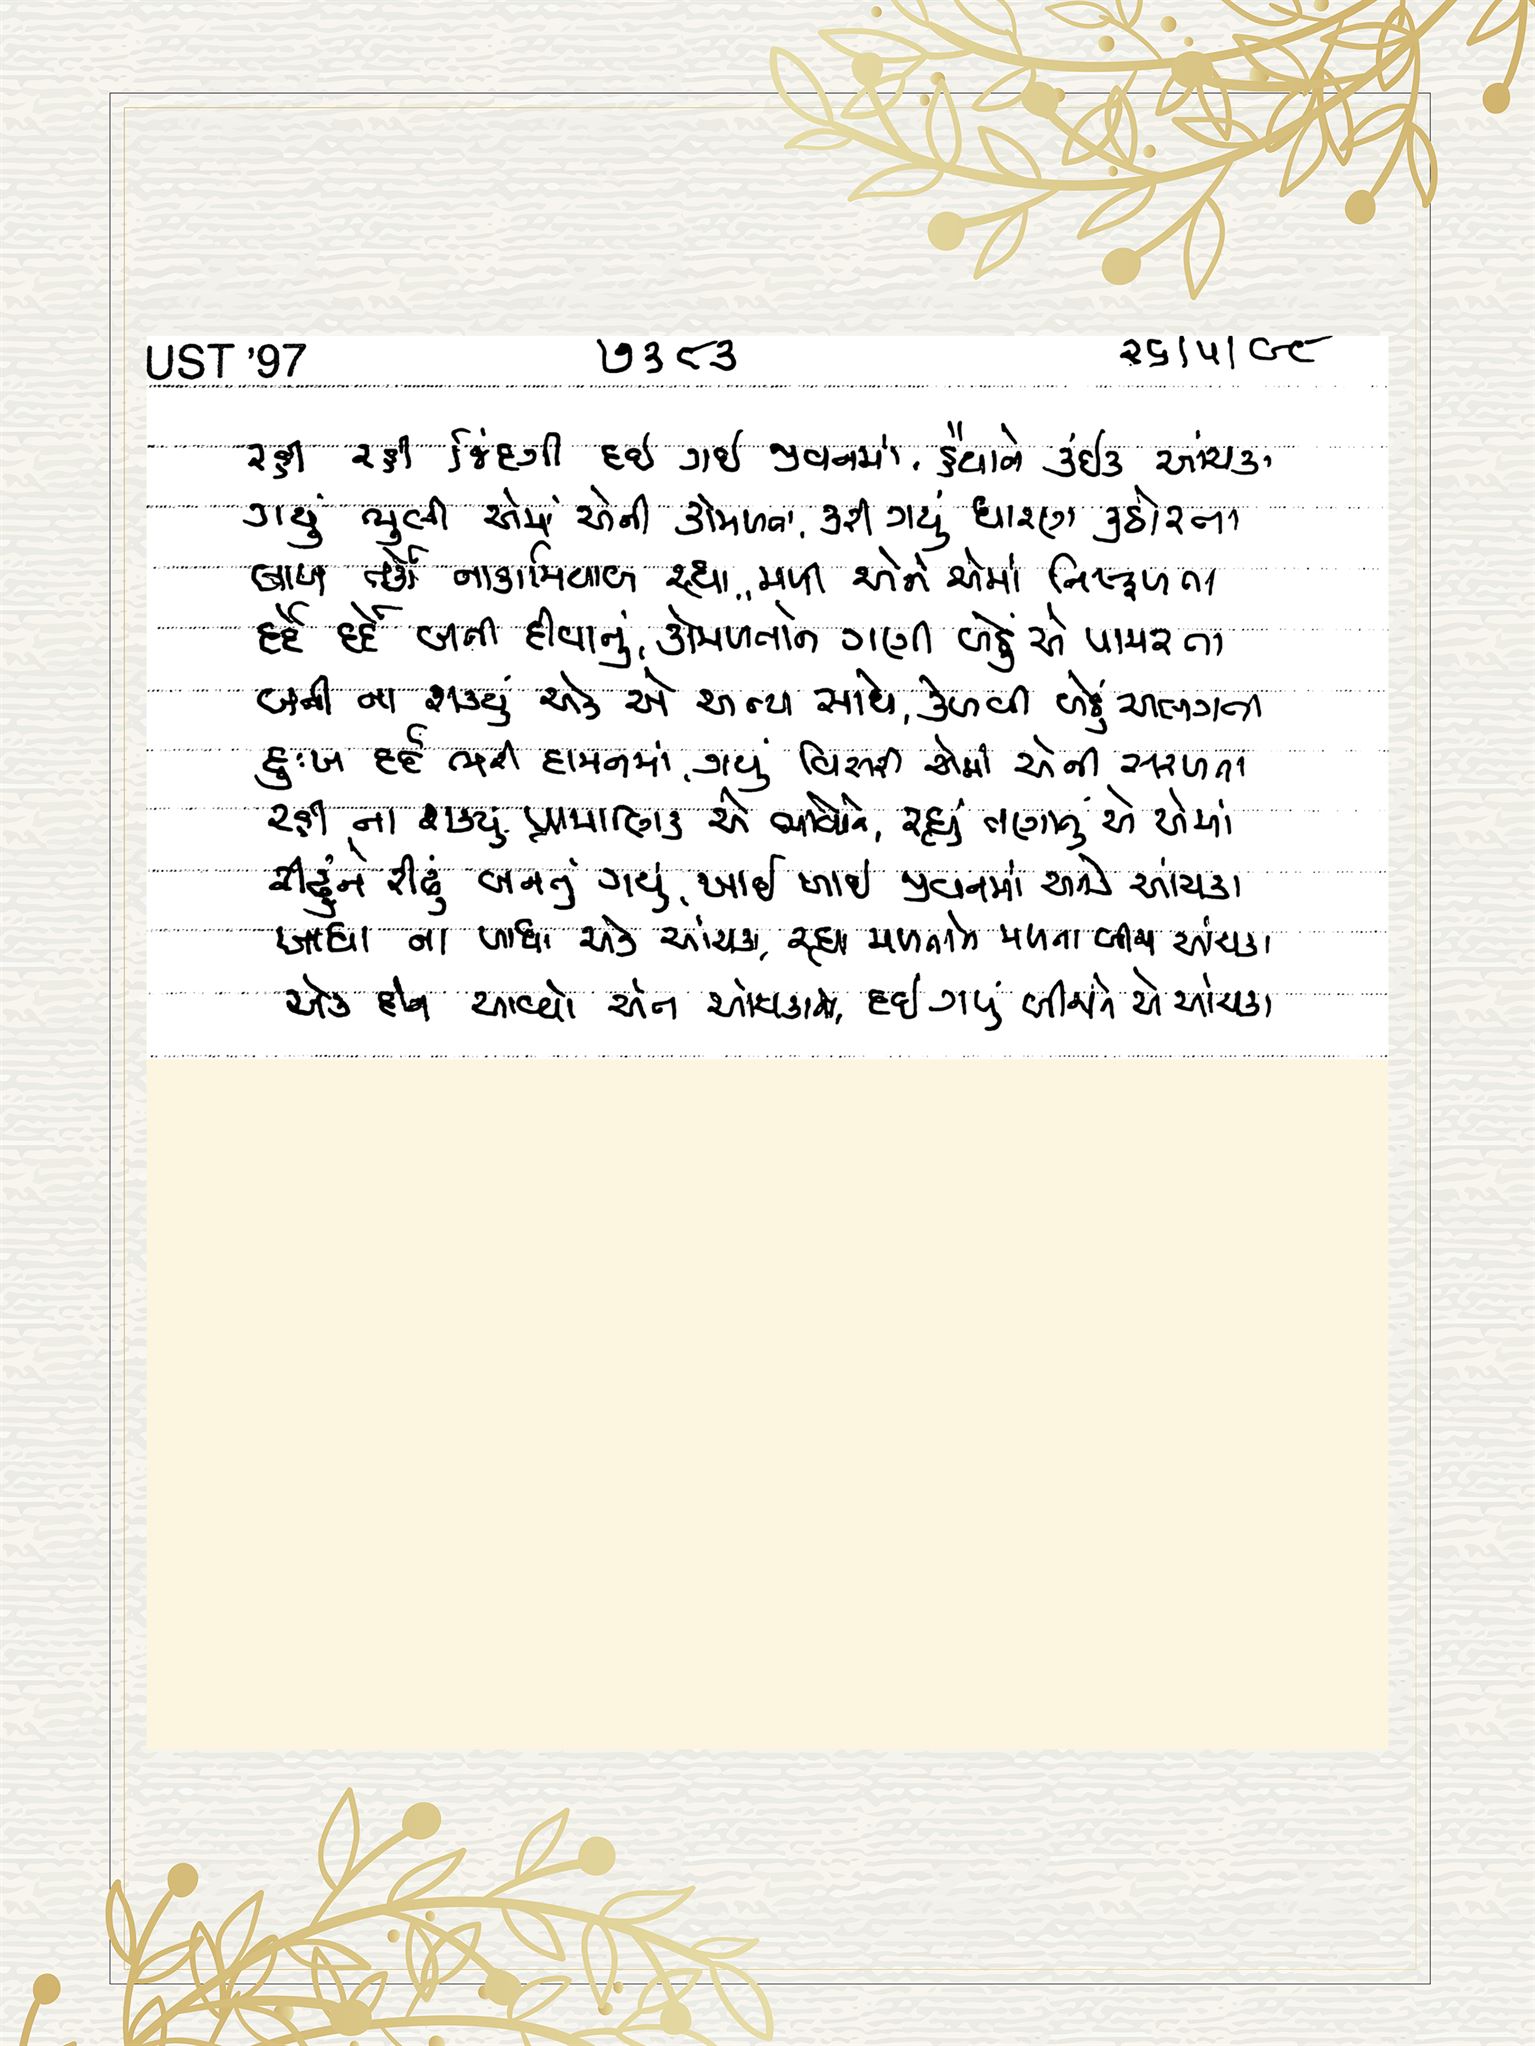 UST '97 ૭૩૮૩ ૨૬/૫/૯૮
રહી રહી જિંદગી દઈ ગઈ જીવનમાં, હૈયાને કંઈક આંચકા
ગયું ભુલી એમાં એની કોમળતા, કરી ગયું ધારણ કઠોરતા
બાળ નાકામિયાબ રહ્યા, મળી એને એમાં નિષ્ફળતા
દર્દે દર્દે બની દીવાનું, કોમળતાને ગણી બેઠું એ પામરતા
બની ના શક્યું એક એ અન્ય સાથે, કેળવી બેઠું અલગતા
દુઃખ દર્દ ભરી દામનમાં, ગયું વિસરી એમાં એની સરળતા
રહી ના શક્યું પ્રામાણિક એ ભાવોને, રહ્યું તણાતું એ એમાં
રીઢુંને રીઢું બનતું ગયું, ખાઈ ખાઈ જીવનમાં આવા આંચકા
ખાધા ના ખાધા એક આંચકા, રહ્યા મળતાને મળતા બીજા આંચકા
એક દિન આવ્યો એને આંચકાને, દઈ ગયું બીજાને એ આંચકા